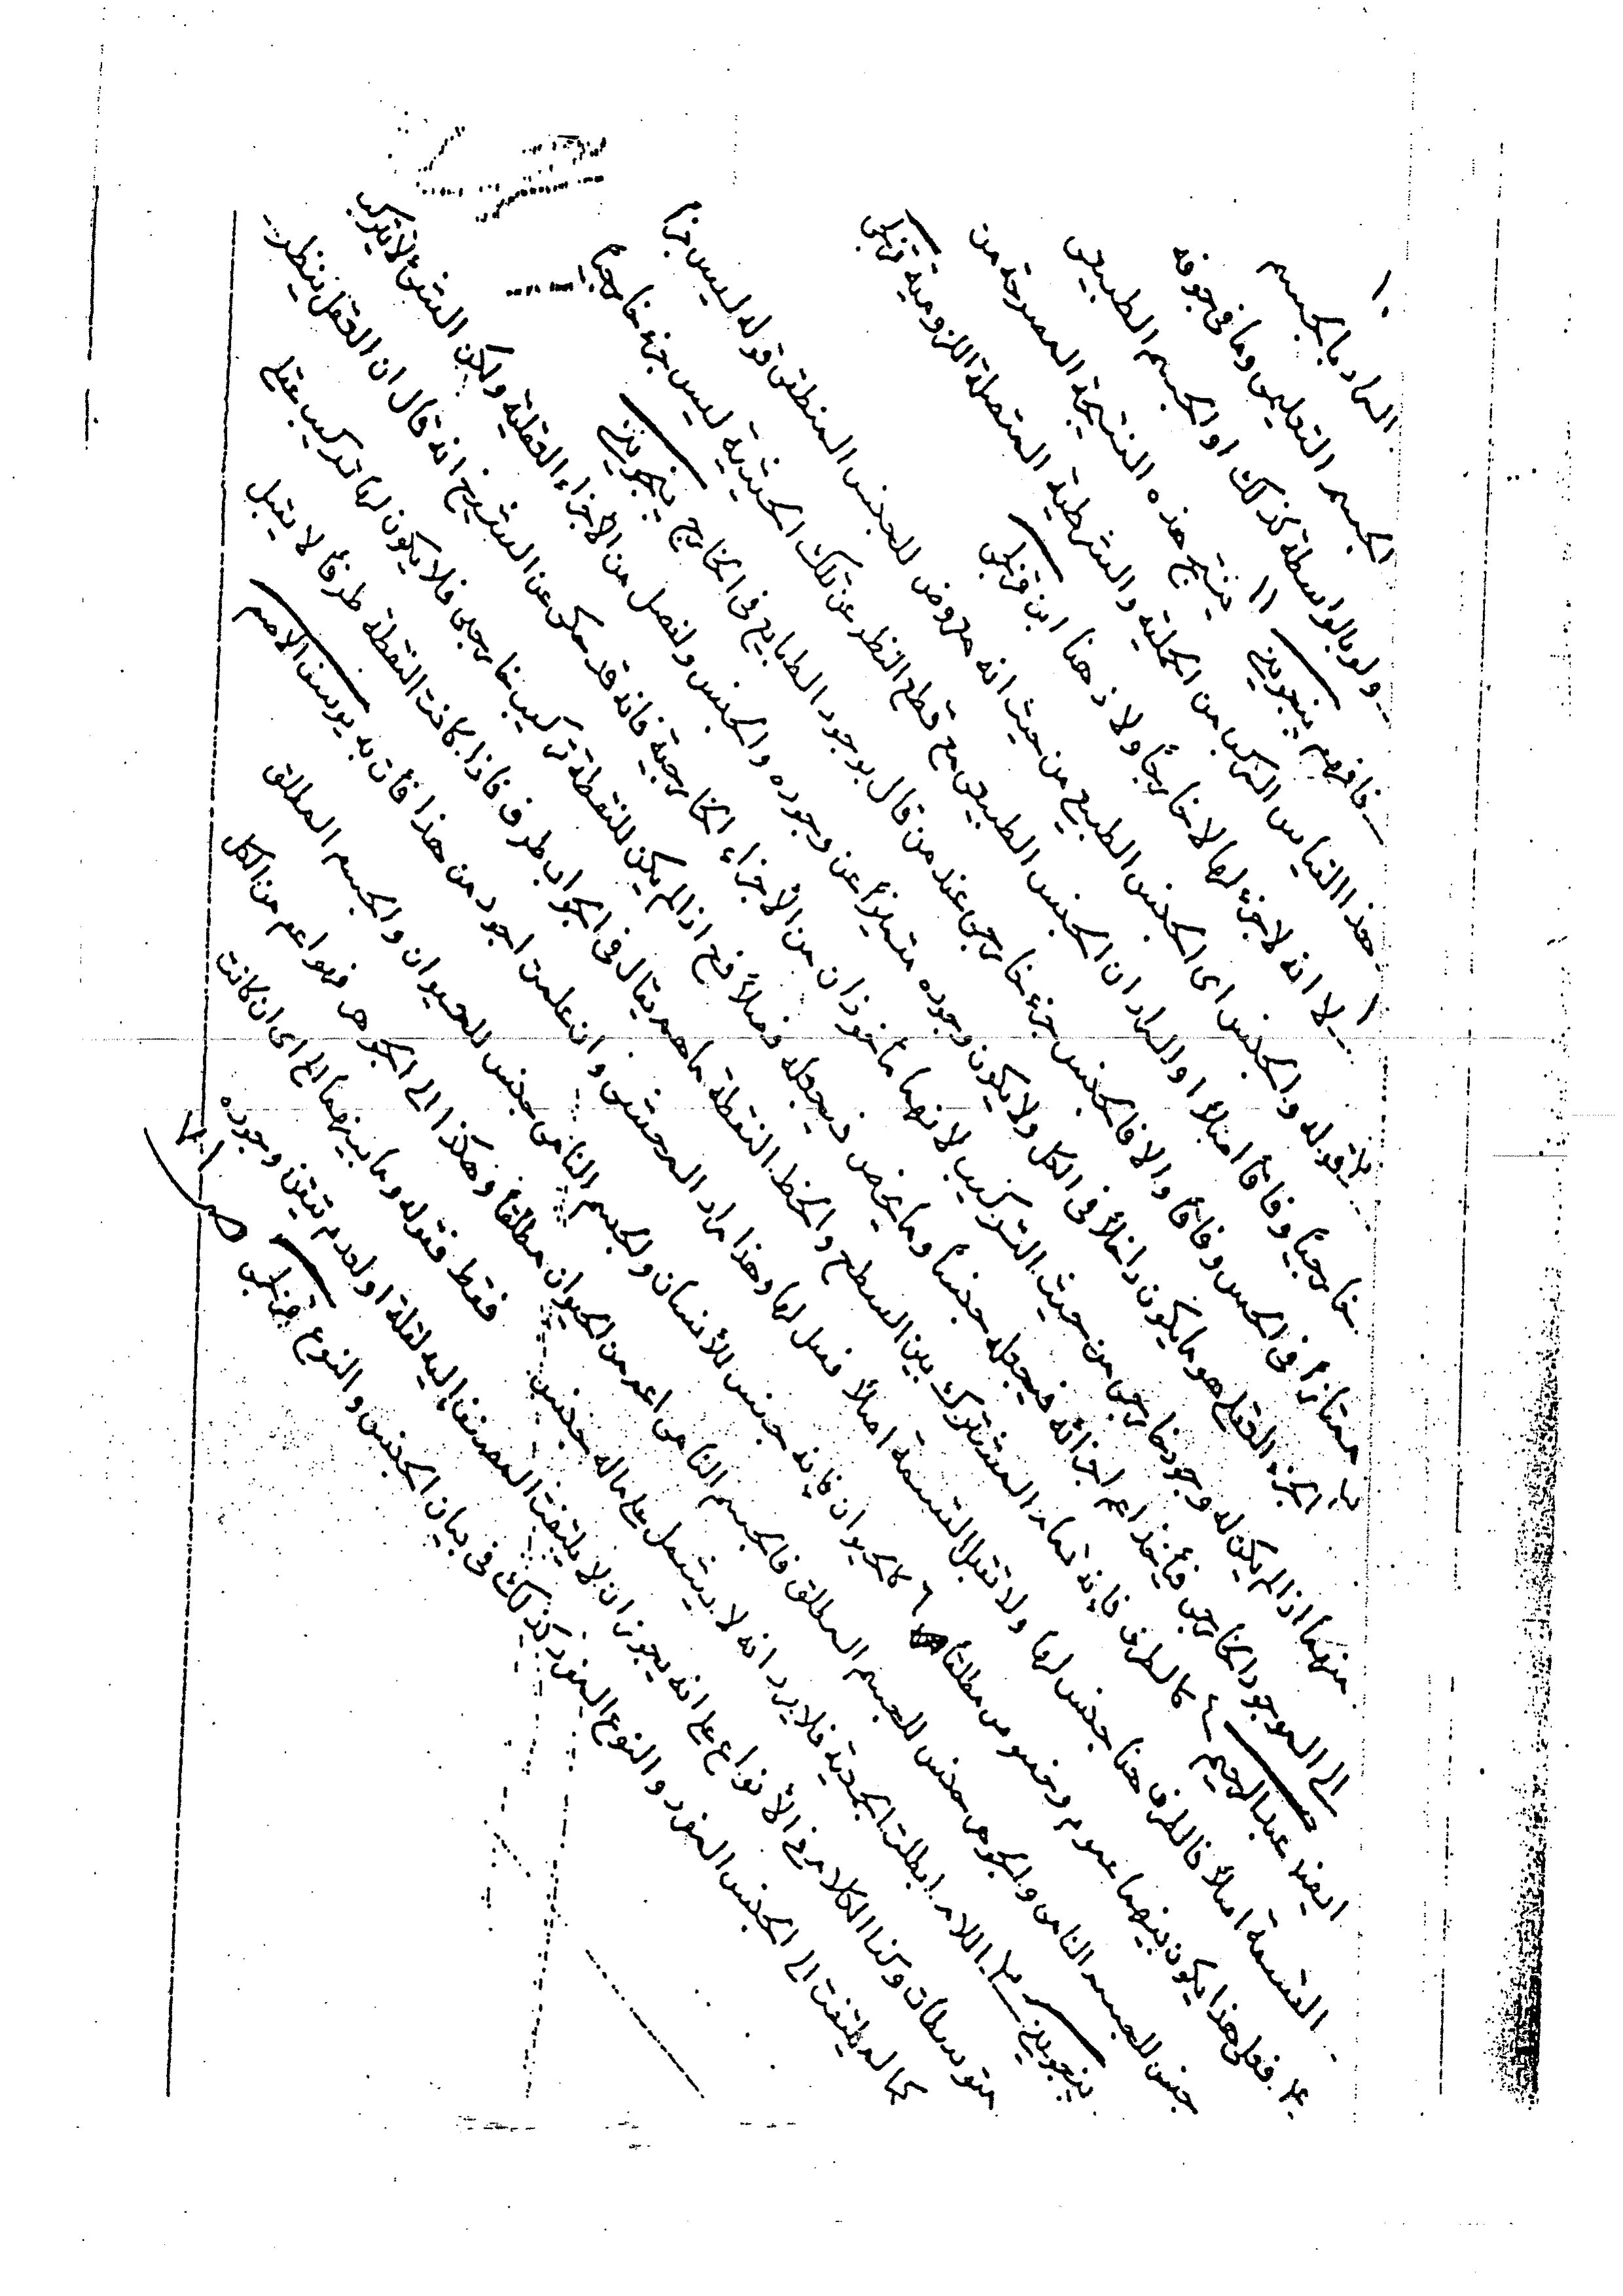 ١٠ المراد بالجسم
الجسم التعليمى وما فى جوفه
ولو بالواسطة كذلك او الجسم الطبيعى
فافهم پنجوينى ١١ ينتج هذه النتيجة المصرحة من
هذا القياس المركب من الحملية والشرطية المتصلة اللزومية قزلجى
لا انه لا جزء لها لا خارجًا ولا ذهنا ابن قزلجى
قوله والجنس اى الجنس الطبيع من حيث انه معروض للجنس المنطقى قوله ليس جزأ
خارجياً وفاقًا اصلاً او المراد ان الجنس الطبيعى مع قطع النظر عن تلك الحيثية ليس جزء خارجيا
ممتازاً فى الحس وفاقًا والا فالجنس جزء خارجى عند من قال بوجود الطبايع فى الخارج پنجوينى
الجزء العقلى هو ما يكون داخلاً فى الكل ولا يكون وجوده متميزاً عن وجوده والجنس والفصل من الأجزاء العقلية ولكن الشئ لا يتركب
منهما اذا لم يكن له وجود خارجى من حيث التركيب لانهما مأخوذان من الأجزاء الخارجية فانه قد حكى عن الشيخ انه قال ان العقل ينظر
الى الموجود الخارجى فيأخذ اعم اجزائه فيجعله جنساً وما يخص فيجعله فصلاً فح اذا لم يكن للنقطة تركيب خارجى فلا يكون لها تركيب عقلى
ايضا عبد الرحيم ٤ كالطرف فانه تمام المشترك بين السطح والخط النقطة ما هم يقال فى الجواب طرف فاذا كانت النقطة طرفًا لا يقبل
القسمة اصلاً فالطرف هنا جنس لها ولا تقبل القسمة اصلاً فصل لها وهذا مراد المحشى وان علمت اجود من هذا فأت به يوسف الاصم
فعلى هذا يكون بينهما عموم وخصوص مطلقا ٦ كالحيوان فانه جنس للأنسان والجسم النامى جنس للحيوان والجسم المطلق
جنس للجسم النامى والجوهر جنس للجسم المطلق فالجسم النامى اعم من الحيوان مطلقاً وهكذا الى الجوهر فهو اعم من الكل
پنجوينى اللام ابطلت الجمعية فلا يرد انه لا يشتمل على ماله جنسين فقط فقوله وما بينهما الخ اى ان كانت
متوسطات وكذا الكلام فى الأنواع على انه يجوز ان لا يلتفت المصنف اليه لقلة او لعدم تيقن وجوده
كما لم يلتفت الى الجنس المفرد والنوع المفرد كذلك فى بيان الجنس والنوع قزلجى